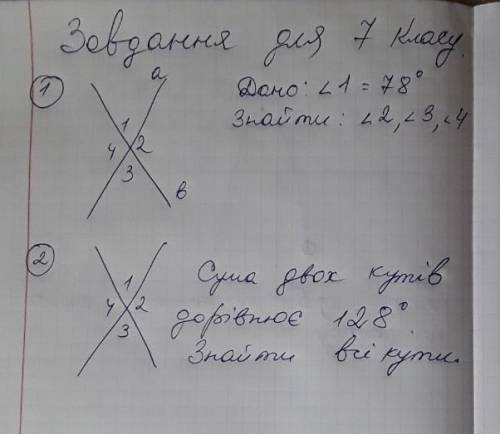 Завдання для 7 класу.
① a Дано: ∠1 = 78°
Знайти: ∠2, ∠3, ∠4
1
4 2
3
в
② Сума двох кутів
1
4 2
дорівнює 128°
3
Знайти всі кути.